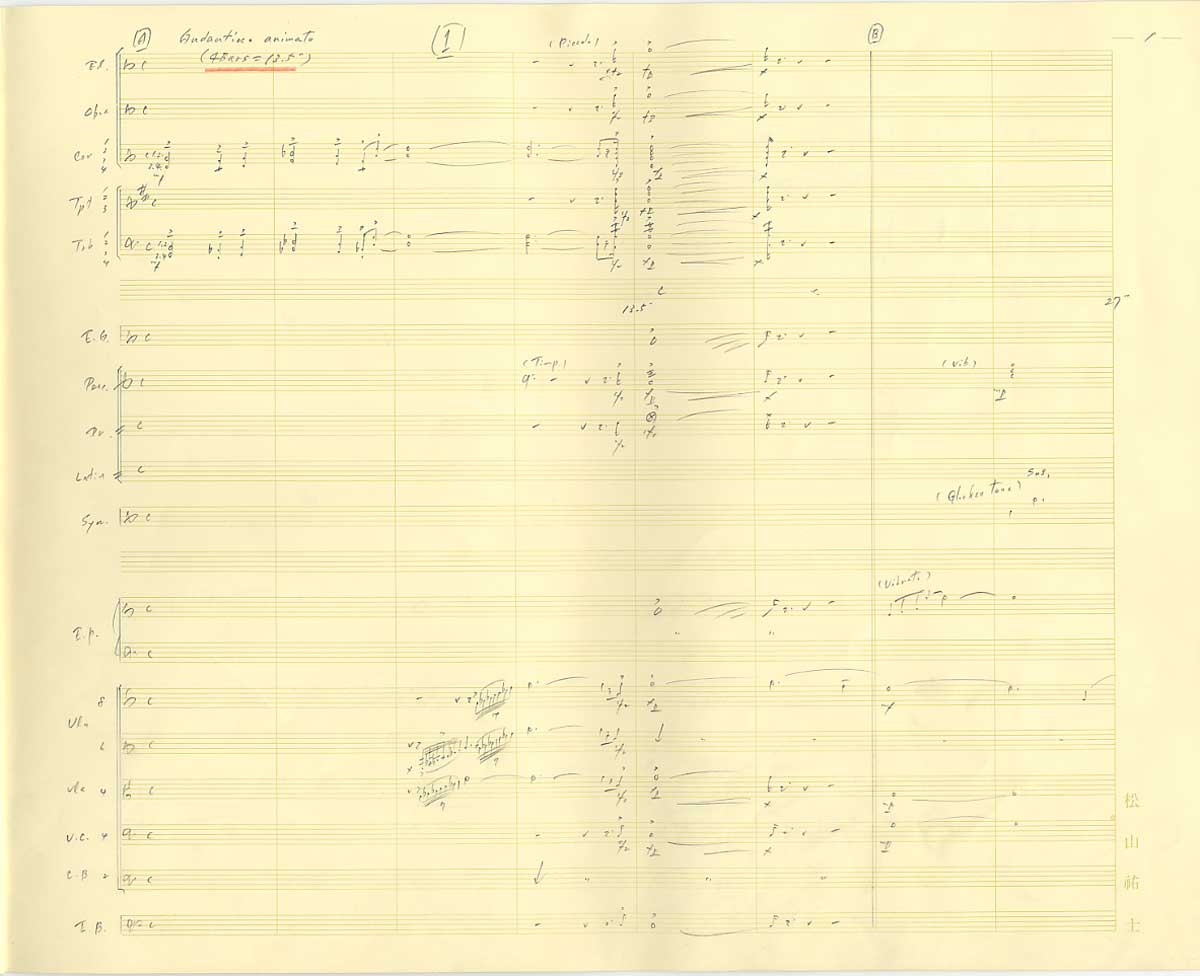 A Andantino animato [1] B - 1 -
(4Bars = 13.5")
(Piccolo)
Fl.
Oboe
Cor 1 2 3 4
Tpt 1 2 3
Tbb 1 2 3 4
13.5"
27"
E.G.
(Timp)
(Vib.)
Perc.
Dr.
Latin
Sus.
(Glocken Tone)
Syn.
(Vibrato)
E.P.
Vln 8
6
Vla 4
V.C. 4
C.B 2
E.B.
松山祐士